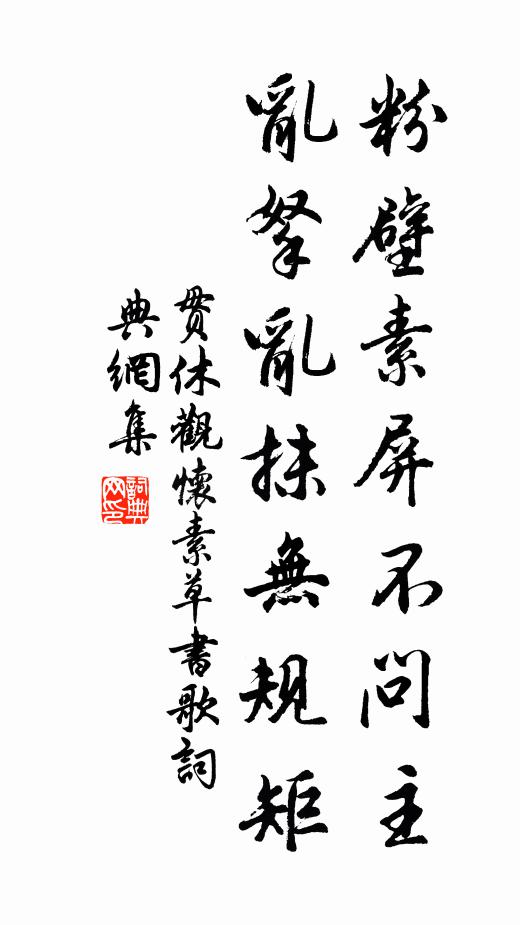 粉壁素屏不問主
亂拏亂抹無規矩
貫休觀懷素草書歌詞
典網集
詞典
网印